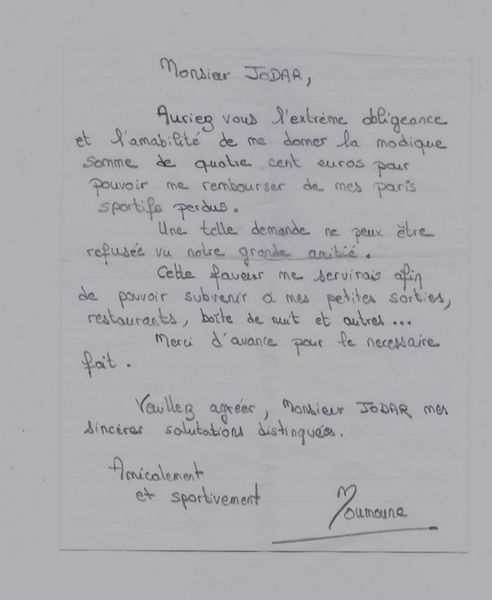 Monsieur JODAR,
Auriez vous l'extrême obligeance
et l'amabilité de me donner la modique
somme de quatre cent euros pour
pouvoir me rembourser de mes paris
sportifs perdus.
Une telle demande ne peux être
refusée vu notre grande amitié.
Cette faveur me servirais afin
de pouvoir subvenir a mes petites sorties,
restaurants, boîte de nuit et autres...
Merci d'avance pour le necessaire
fait.
Veuillez agréer, Monsieur JODAR mes
sincères salutations distinguées.
Amicalement
et sportivement
Moumoune